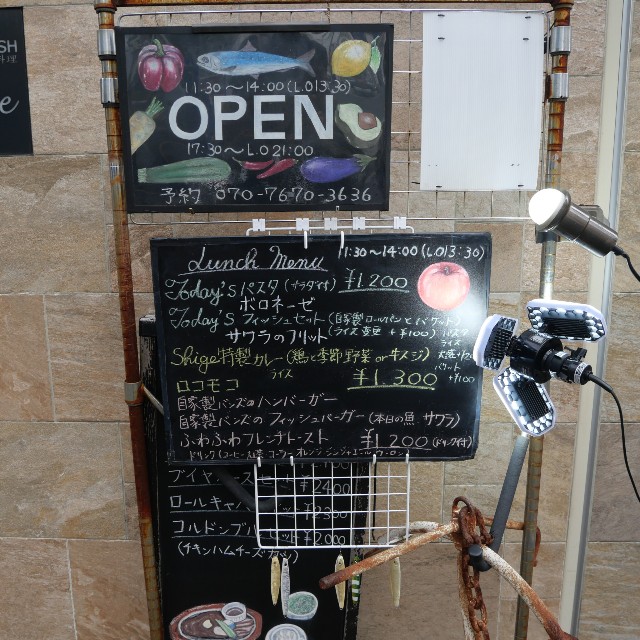 SH
料理
e
11:30～14:00(L.O13:30)
OPEN
17:30～L.O21:00
予約 070-7670-3636
Lunch Menu 11:30～14:00(L.O13:30)
Today's パスタ(サラダ付) ¥1,200
ボロネーゼ
Today's フィッシュセット(自家製ロールパン
ライス変更 +¥100) パスタ
サワラのフリット ライス
大盛り
Shige特製カレー(魚と季節野菜 or キノジ) バケット
ライス +¥100
ロコモコ ¥1,300
自家製バンズのハンバーガー
自家製バンズのフィッシュバーガー(本日の魚 サワラ)
ふわふわフレンチトースト ¥1200(ドリンク付)
ドリンク(コーヒー 紅茶 コーラ オレンジ ジンジャーエール ウーロン)
¥2400
ロールキャ
コルドンブル ¥2,000
(チキンハムチーズ